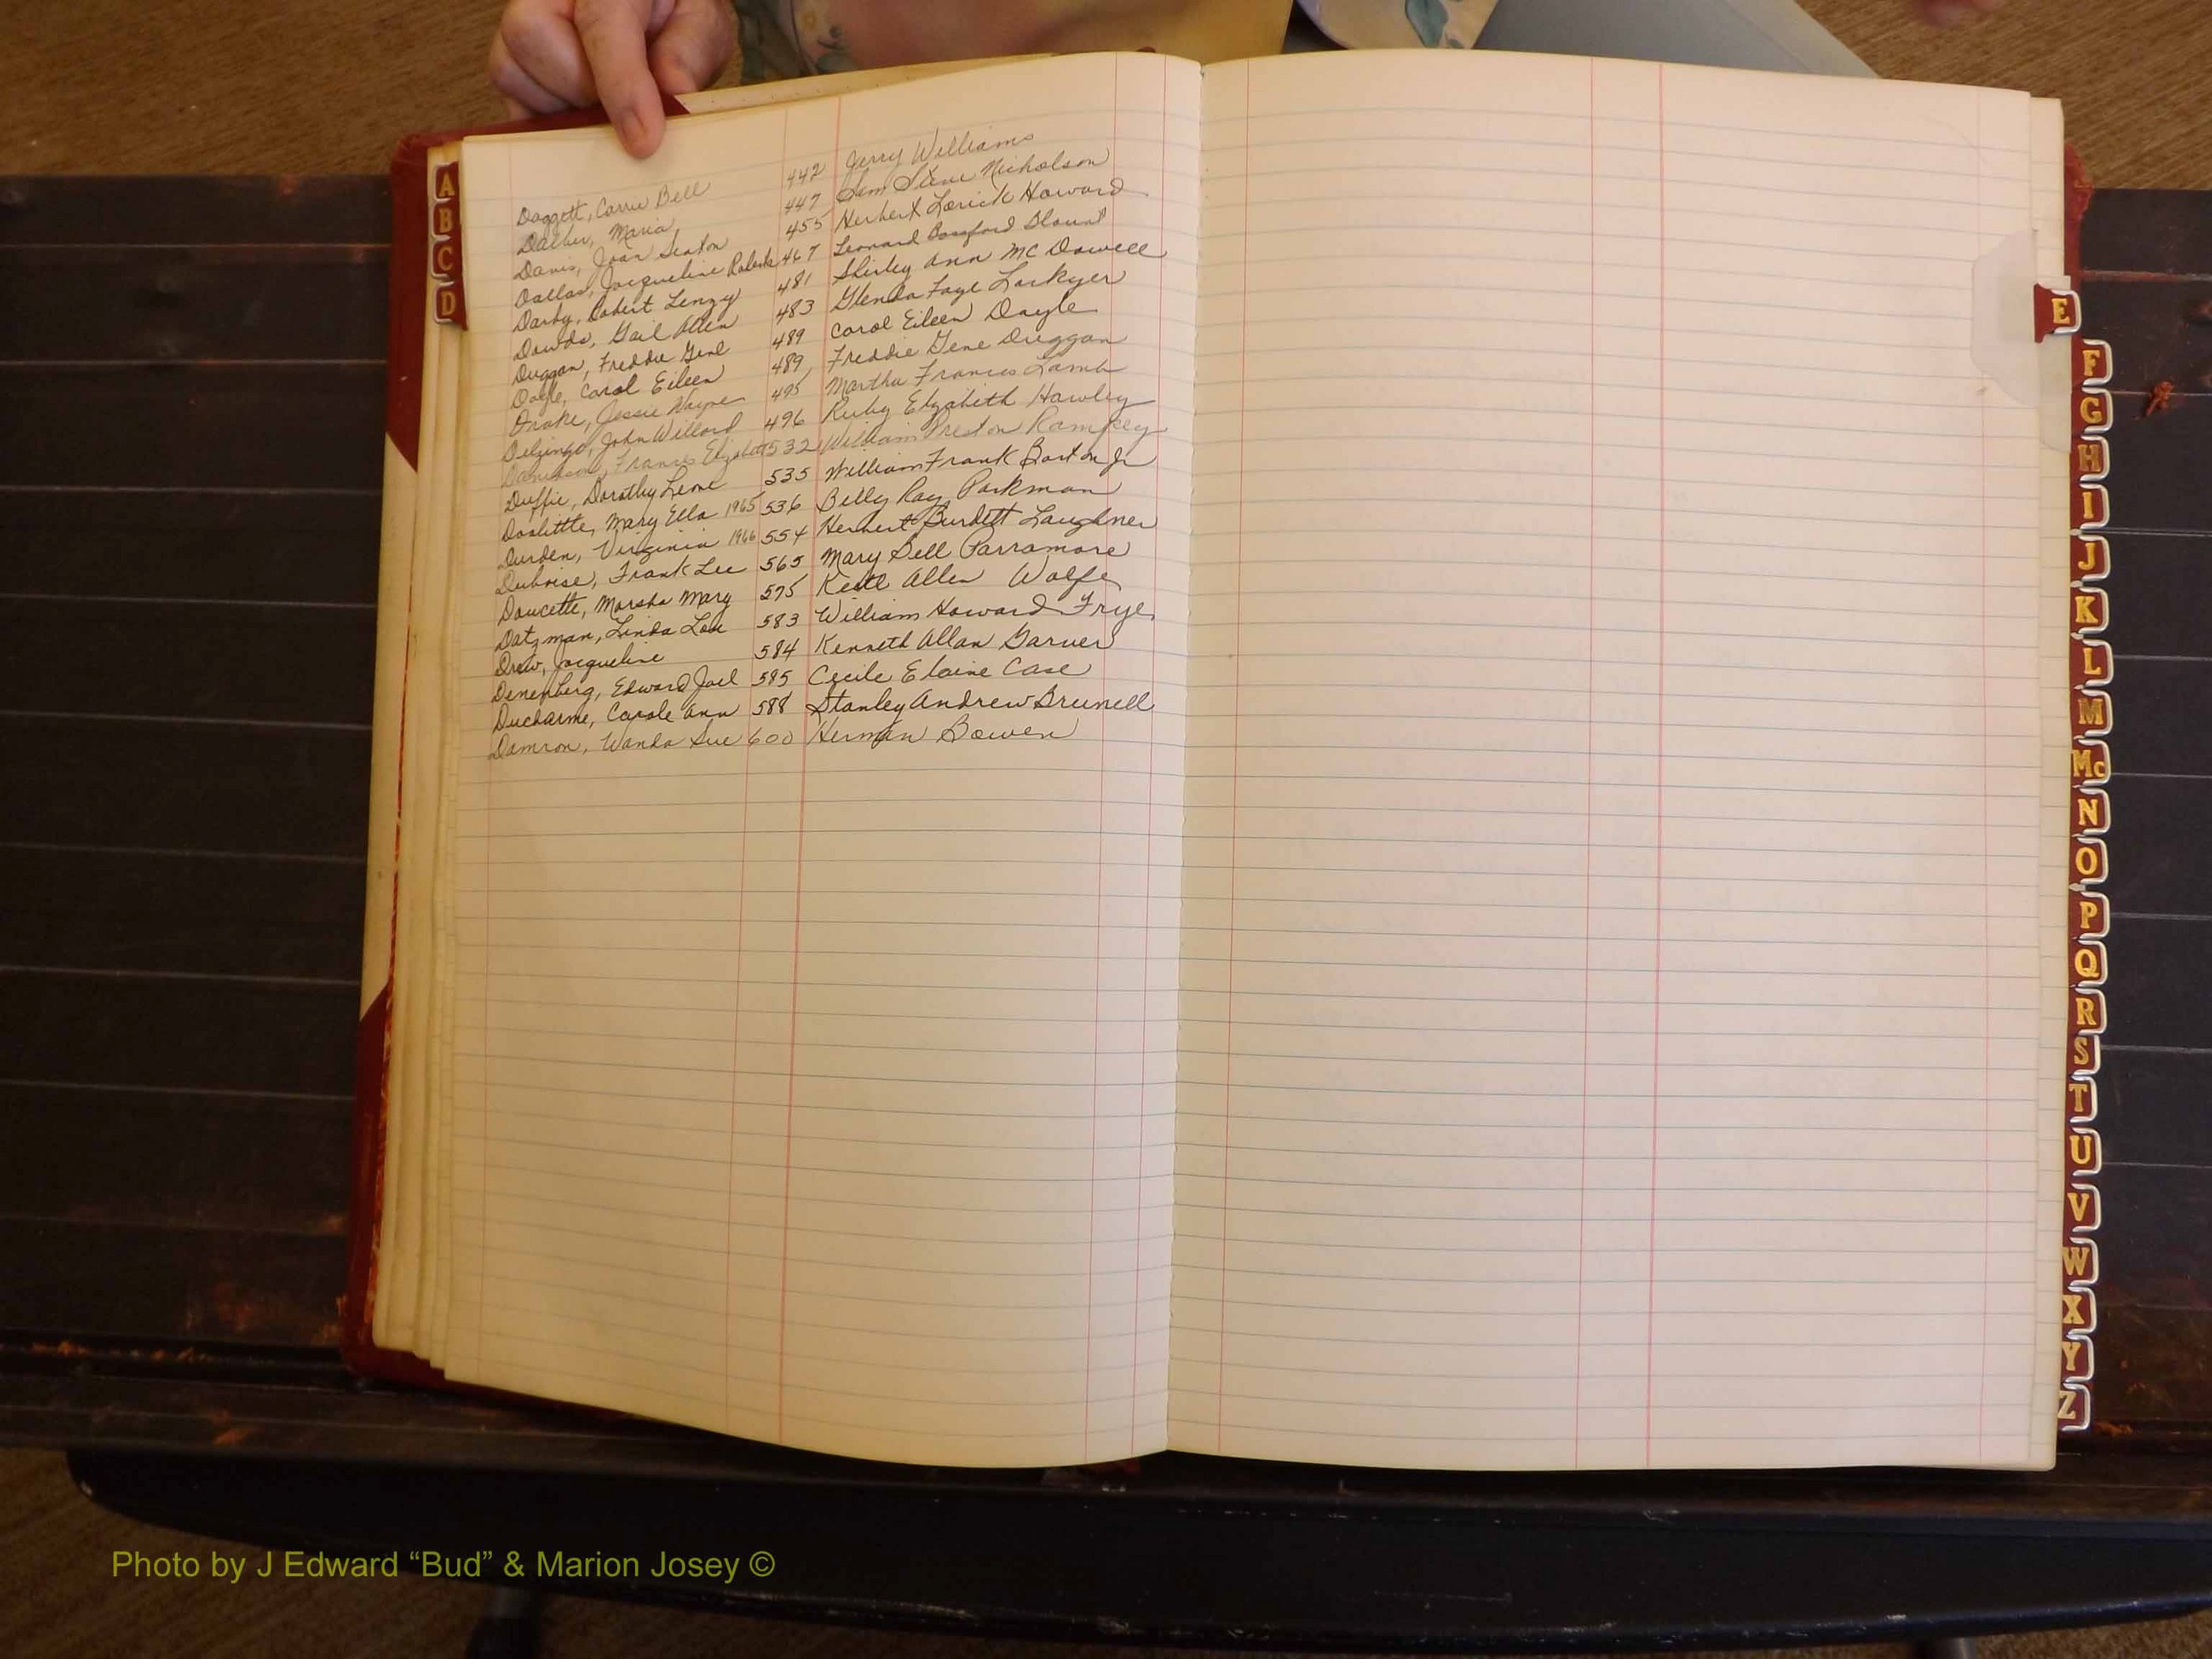 A
B
C
D
Daggett, Carrie Bell 442 Jerry Williams
Maria, 447 Sam Steve Nicholson
Davis, Joan Seaton 455 Herbert Lorick Howard
Dallas, Jacqueline Roberts 467 Leonard Blount
Darby, Robert Lenzy 481 Shirley Ann McDowell
Dowds, Gail Allen 483 Glenda Faye
Duggan, Freddie Gene 489 Carol Eileen Doyle
Doyle, Carol Eileen 489 Freddie Gene Duggan
Drake, Jessie Wayne 495 Martha Frances Lamb
John Willard 496 Ruby Elizabeth Hawley
Frances Elizabeth 532 William Preston Rampey
Duffie, Dorothy Leone 535 William Frank Barton Jr
Doolittle, Mary Ella 1965 536 Billy Ray Parkman
Durden, Virginia 1966 554 Herbert Burdett Laughner
Duboise, Frank Lee 565 Mary Bell Parramore
Doucette, Marsha Mary 575 Allen Wolfe
Datzman, Linda Lou 583 William Howard Frye
Drew, Jacqueline 584 Kenneth Allan Garver
Denenberg, Edward Joel 585 Cecile Elaine Case
Ducharme, Carole Ann 588 Stanley Andrew Brunell
Damron, Wanda Sue 600 Herman Bowen
E
F
G
H
I
J
K
L
M
Mc
N
O
P
Q
R
S
T
U
V
W
X
Y
Z
Photo by J Edward “Bud” & Marion Josey ©